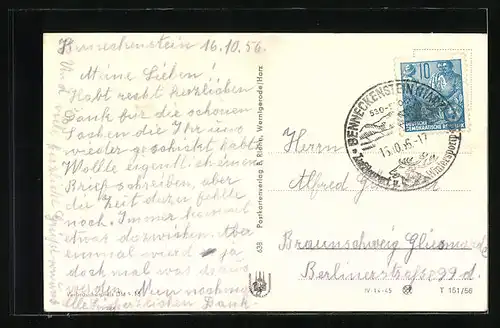 Benneckenstein 16.10.56
Meine Lieben!
Habt recht herzlichen
Dank für die schönen
Sachen die Ihr uns
wieder geschickt habt.
Wollte eigentlich einen
Brief schreiben, aber
die Zeit dazu fehlte
noch. Immer kommt
etwas dazwischen. Aber
einmal wird ja
doch mal was daraus
werden. Nun nochmals
herzlichen Dank
Und viele herzliche Grüße
638 Postkartenverlag Wernigerode/Harz
10
DEUTSCHE
DEMOKRATISCHE
BENNECKENSTEIN (HARZ)
Wintersport
Herrn
Alfred
Braunschweig
Berlinerstraße
IV-14-45 T 151/56